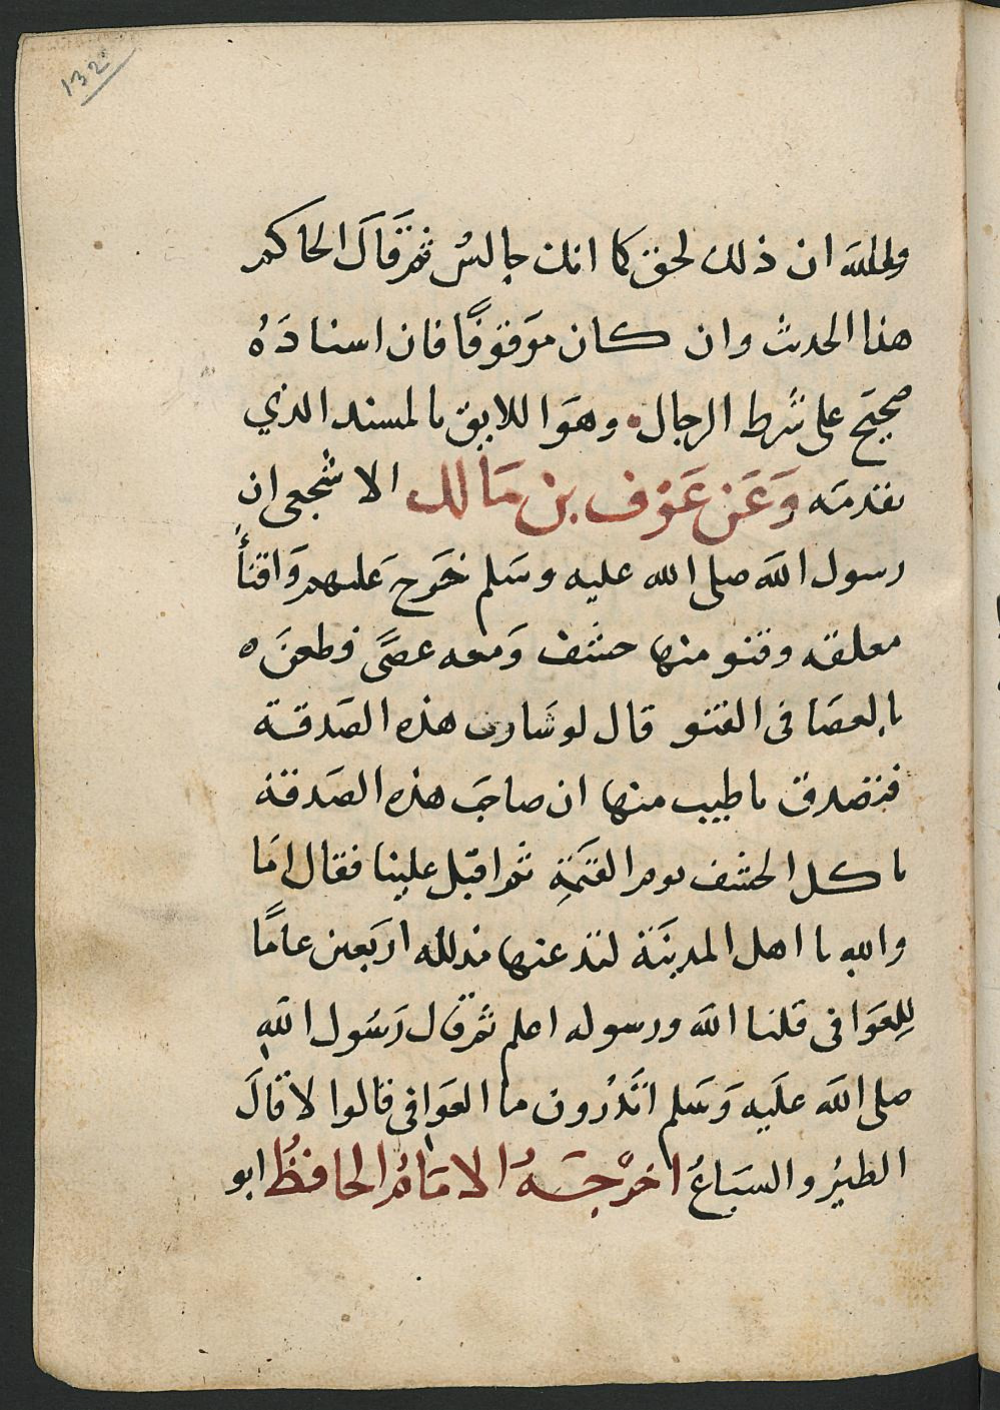 132
والله ان ذلك لحق كما انك جالسُ ثم قَالَ الحاكم
هذا الحديث وان كان مَوقوفًا فان اسنادَهُ
صحيحَ على شَرط الرجال وهوَ اللايق بالمسند الذي
تقدمَه وَعَن عَوْف بن مَالك الاشجعي ان
رسول الله صلى الله عليه وسَلم خَرَج عَليهم وَاقنأُ
معلقه وقنو منها حشف وَمعه عصًى فطعنَه
بالعصَا في القنو قال لو شَا رب هذه الصَدقة
فتصدق باطيب منها ان صاحبَ هذه الصَدقة
ياكل الحشف يوم القيَمَةِ ثم اقبَل علينا فقال امَا
والله يا اهل المدينَة لتدعنها مذلله اربَعين عامًا
لِلعَوَافي قلنا الله ورسوله اعلم ثم قال رَسَول اللهِ
صلى الله علَيه وَسَلم اتَدْرون ما العوَافي قالوا لا قَالَ
الطيْرُ والسبَاعُ اخرْجَهُ الامَامُ الحافظُ ابو